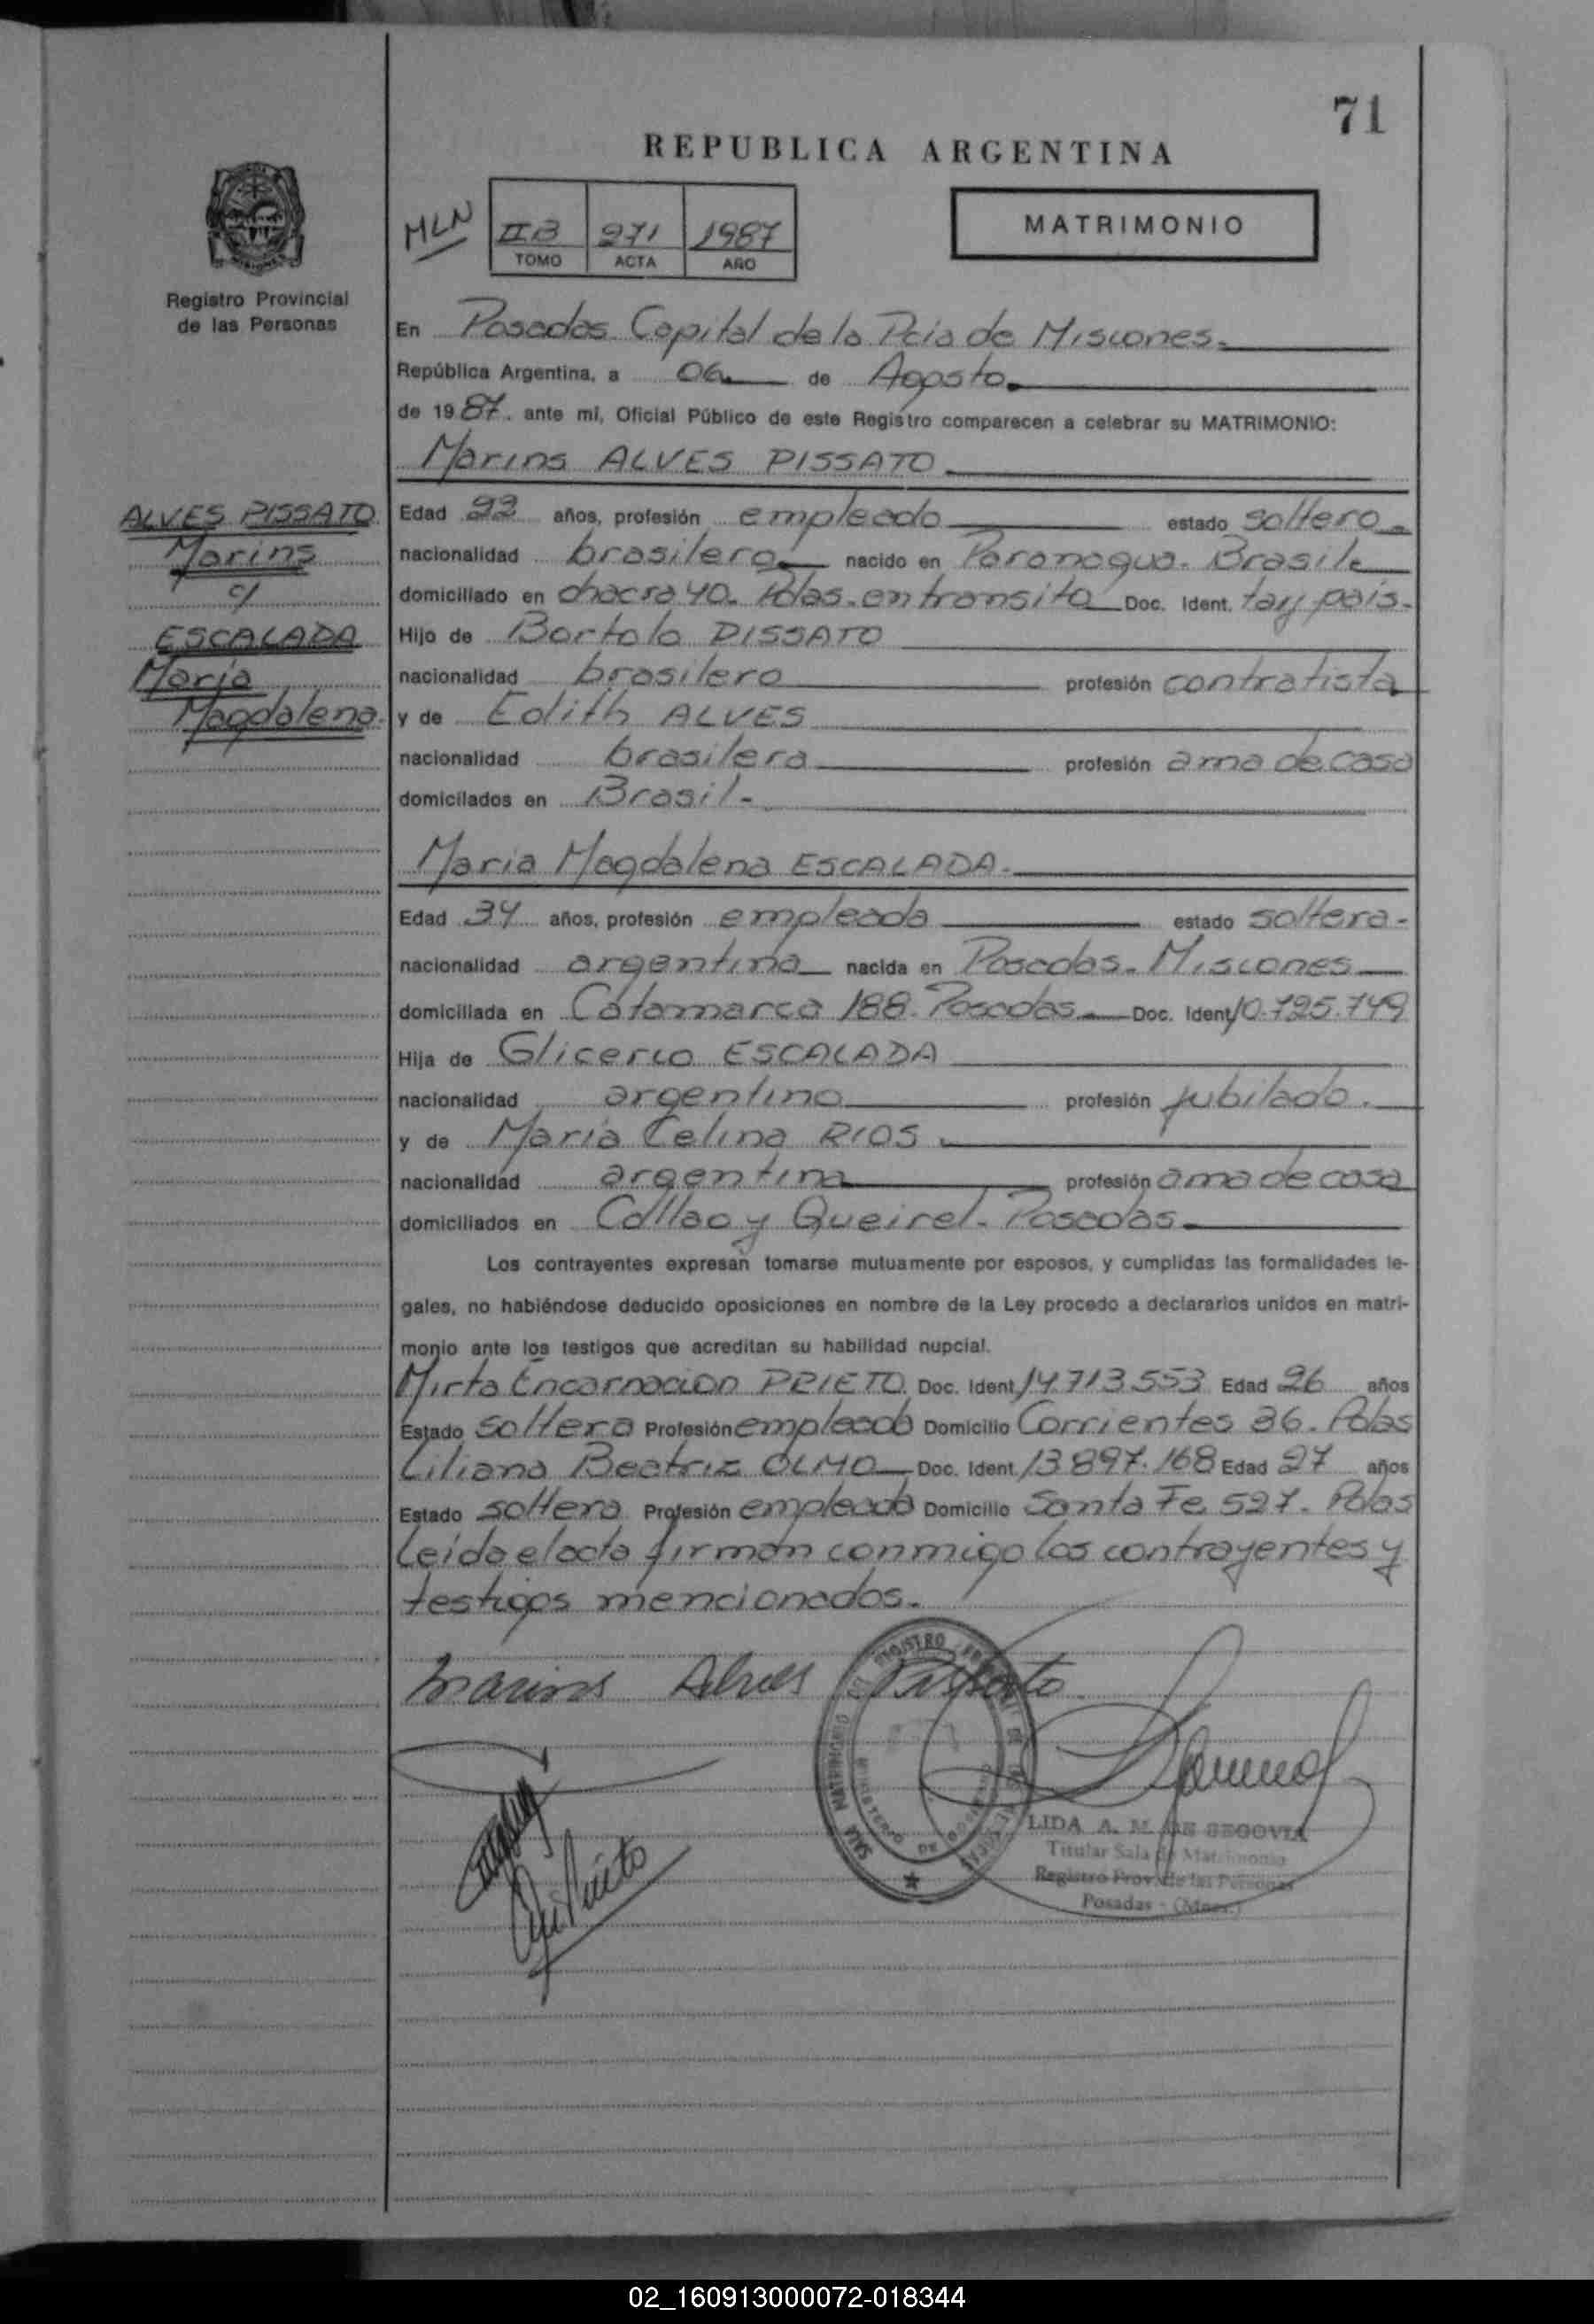 71
REPUBLICA ARGENTINA
MLN
II B 271 1987
TOMO ACTA AÑO
MATRIMONIO
Registro Provincial
de las Personas
En Posadas Capital de la Pcia de Misiones.
República Argentina, a 06 de Agosto.
de 19 87. ante mi, Oficial Público de este Registro comparecen a celebrar su MATRIMONIO:
Marins ALVES PISSATO
ALVES PISSATO
Marins
c/
ESCALADA
María
Magdalena.
Edad 22 años, profesión empleado estado soltero.
nacionalidad brasilera nacido en Paranagua. Brasil.
domiciliado en chacra 40. Pdas. en transito Doc. Ident. tarj país.
Hijo de Bortolo PISSATO
nacionalidad brasilero profesión contratista
y de Edith ALVES
nacionalidad brasilera profesión ama de casa
domicilados en Brasil.
Maria Magdalena ESCALADA.
Edad 34 años, profesión empleada estado soltera.
nacionalidad argentina nacida en Posadas. Misiones
domiciliada en Catamarca 188. Posadas. Doc. Ident. 10.795.749
Hija de Glicerio ESCALADA
nacionalidad argentino profesión jubilado.
y de María Celina RIOS
nacionalidad argentina profesión ama de casa
domiciliados en Callao y Queirel. Posadas.
Los contrayentes expresan tomarse mutuamente por esposos, y cumplidas las formalidades le-
gales, no habiéndose deducido oposiciones en nombre de la Ley procedo a declararlos unidos en matri-
monio ante los testigos que acreditan su habilidad nupcial.
Mirta Encarnacion PRIETO. Doc. Ident. 14.713.553 Edad 26 años
Estado soltera Profesión empleada Domicilio Corrientes 36. Pdas
Liliana Beatriz OLMO Doc. Ident. 13.897.168 Edad 27 años
Estado soltera Profesión empleada Domicilio Santa Fe 527. Pdas
Leída el acta firman conmigo los contrayentes y
testigos mencionados.
Marins Alves Pissato
LIDA A. M. DE SEGOVIA
Titular Sala de Matrimonio
Registro Prov. de las Personas
Posadas - (Mnes.)
02_160913000072-018344